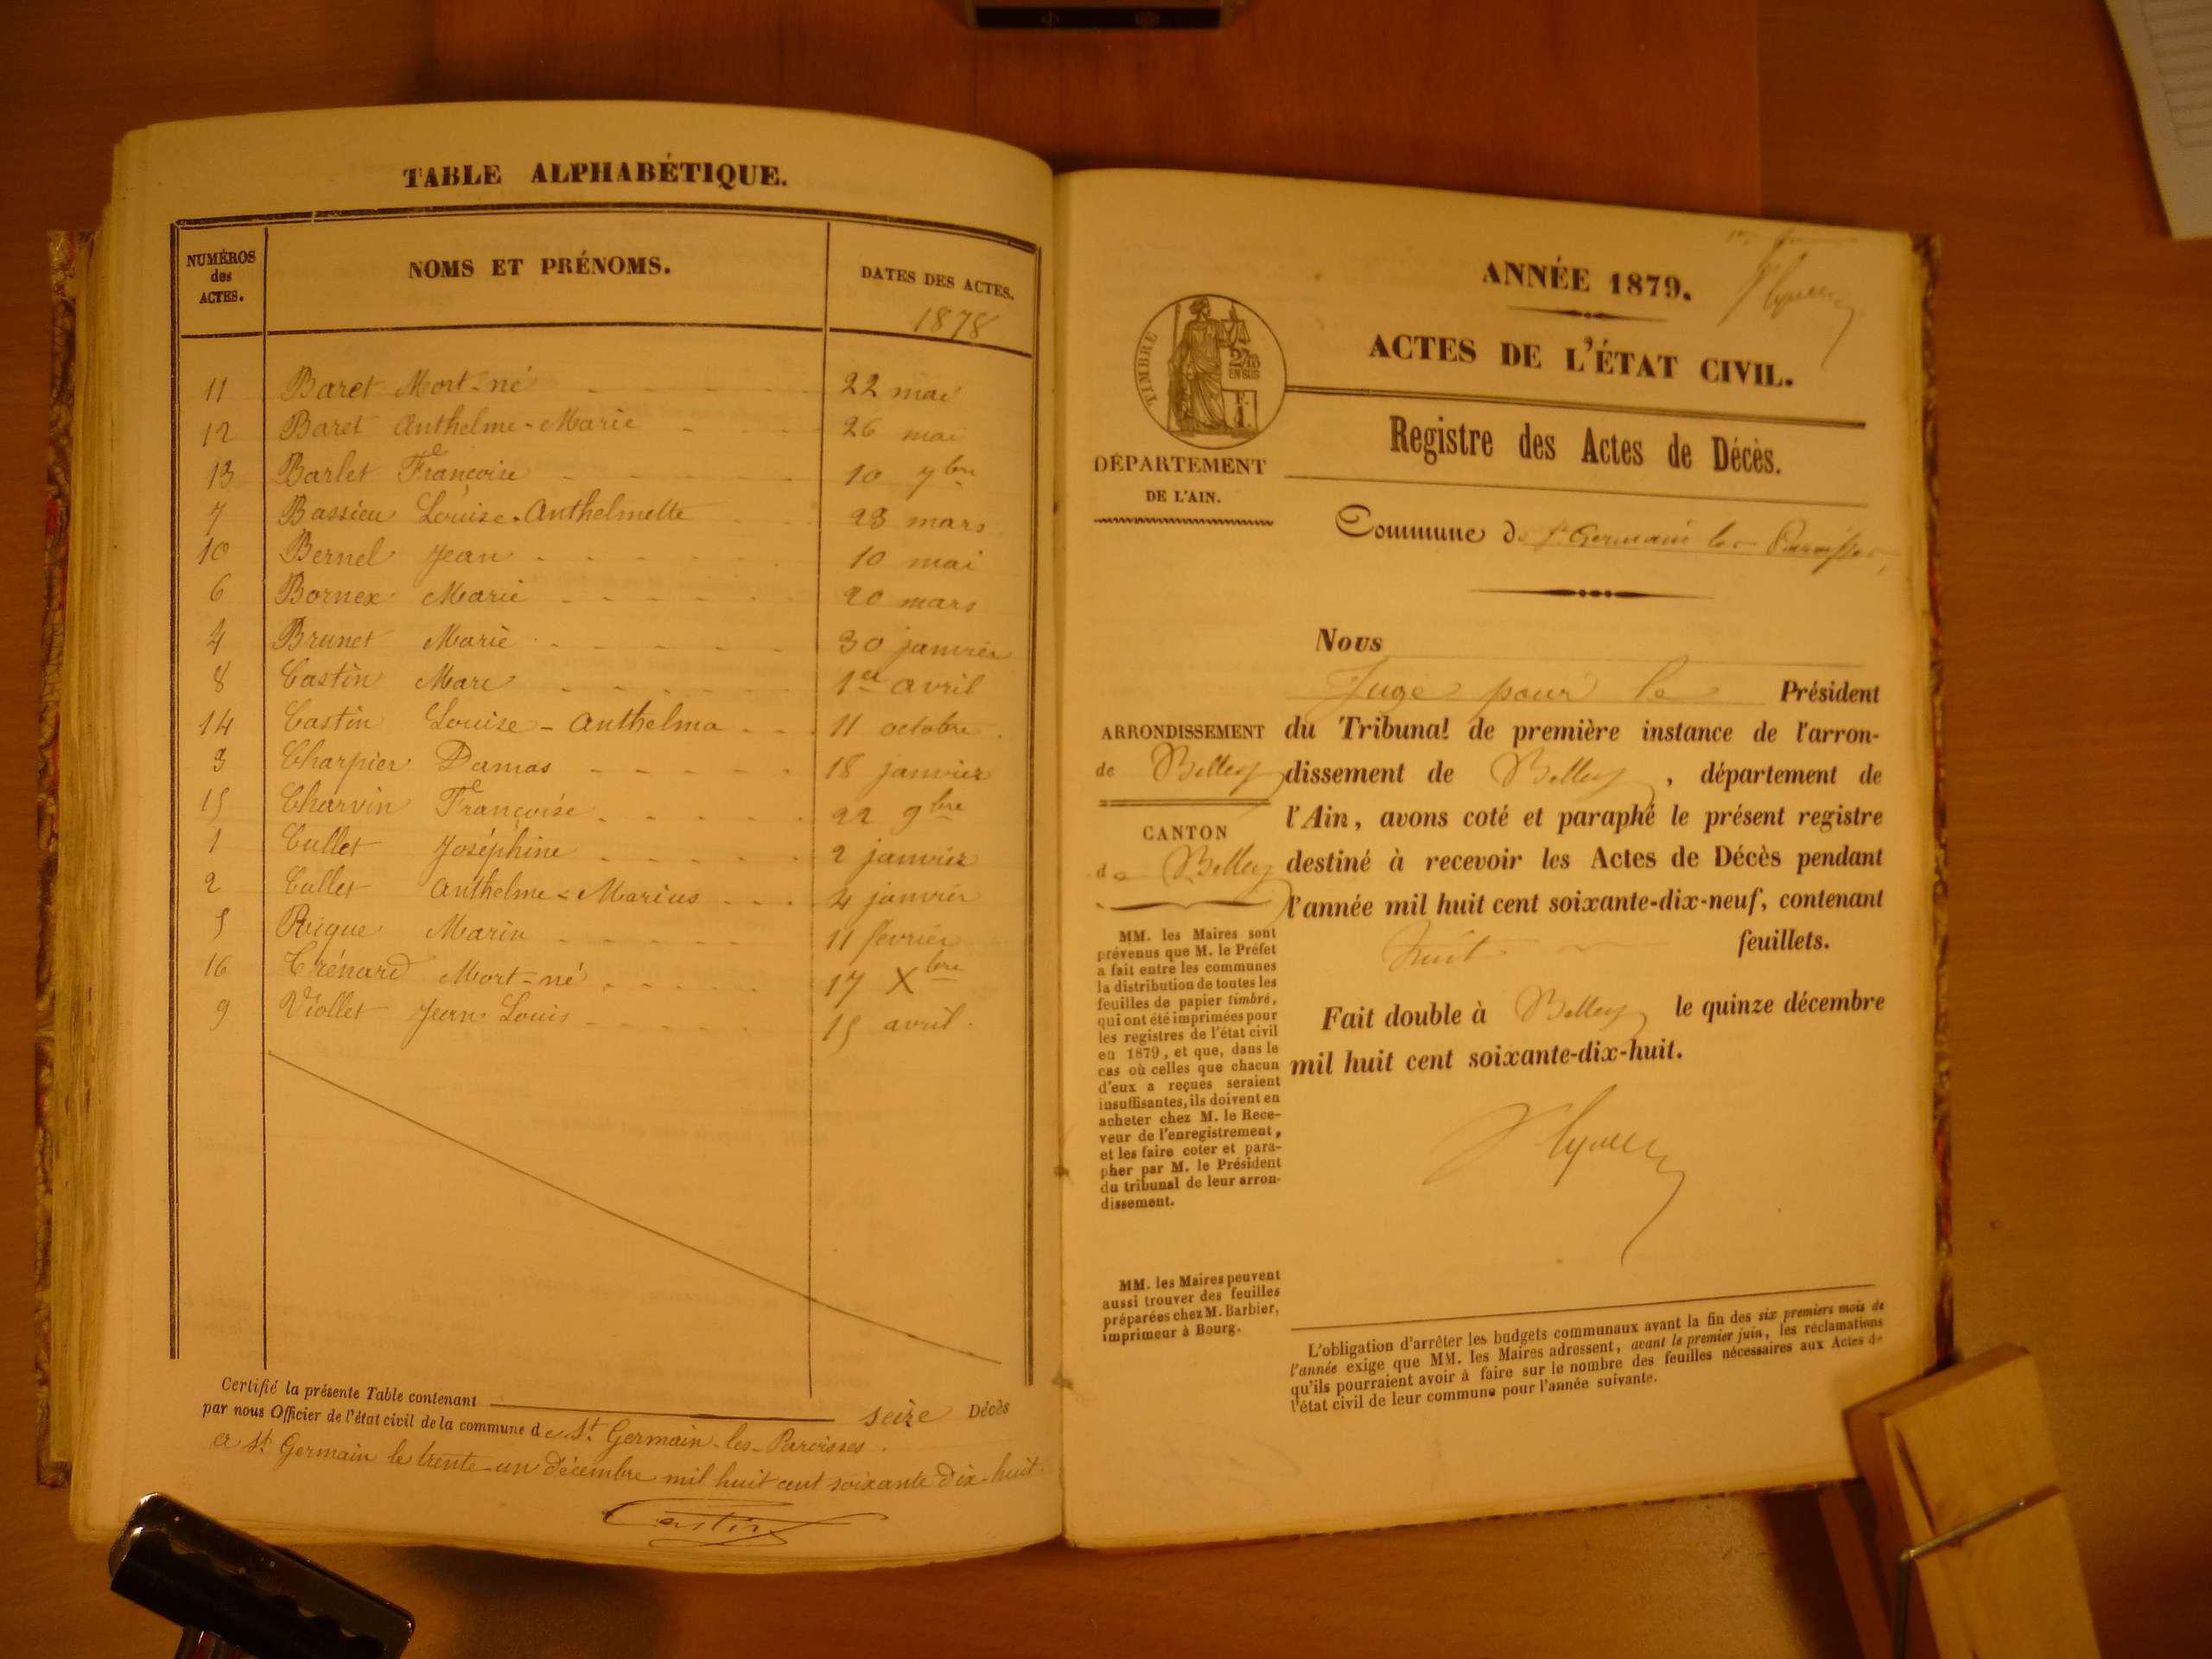 TABLE ALPHABÉTIQUE.
NUMÉROS des ACTES. NOMS ET PRÉNOMS. DATES DES ACTES.
1878
11 Baret Mort-né 22 mai
12 Baret Anthelme-Marie 26 mai
13 Barlet Françoise 10 7bre
7 Bassieu Louise-Anthelmette 23 mars
10 Bernel Jean 10 mai
6 Bornex Marie 20 mars
4 Brunet Marie 30 janvier
8 Castin Marc 1er avril
14 Castin Louise-Anthelma 11 octobre
3 Charpier Damas 18 janvier
15 Charvin Françoise 22 9bre
1 Cullet Joséphine 2 janvier
2 Cullet Anthelme-Marius 4 janvier
5 Rigue Marin 11 février
16 Trénard Mort-né 17 Xbre
9 Viollet Jean Louis 15 avril
Certifié la présente Table contenant seize Décès
par nous Officier de l'état civil de la commune de St Germain-les-Paroisses.
a St Germain le trente-un décembre mil huit cent soixante dix-huit.
Castin
ANNÉE 1879.
ACTES DE L'ÉTAT CIVIL.
TIMBRE
2/10
EN SUS
Registre des Actes de Décès.
DÉPARTEMENT
DE L'AIN.
Commune de St Germain les Paroisses
Nous
Juge pour le Président
du Tribunal de première instance de l'arron-
dissement de Belley, département de
l'Ain, avons coté et paraphé le présent registre
destiné à recevoir les Actes de Décès pendant
l'année mil huit cent soixante-dix-neuf, contenant
huit feuillets.
Fait double à Belley le quinze décembre
mil huit cent soixante-dix-huit.
ARRONDISSEMENT
de Belley
CANTON
de Belley
MM. les Maires sont
prévenus que M. le Préfet
a fait entre les communes
la distribution de toutes les
feuilles de papier timbré,
qui ont été imprimées pour
les registres de l'état civil
en 1879, et que, dans le
cas où celles que chacun
d'eux a reçues seraient
insuffisantes, ils doivent en
acheter chez M. le Rece-
veur de l'enregistrement,
et les faire coter et para-
pher par M. le Président
du tribunal de leur arron-
dissement.
MM. les Maires peuvent
aussi trouver des feuilles
préparées chez M. Barbier,
imprimeur à Bourg.
L'obligation d'arrêter les budgets communaux avant la fin des six premiers mois de
l'année exige que MM. les Maires adressent, avant le premier juin, les réclamations
qu'ils pourraient avoir à faire sur le nombre des feuilles nécessaires aux Actes de
l'état civil de leur commune pour l'année suivante.